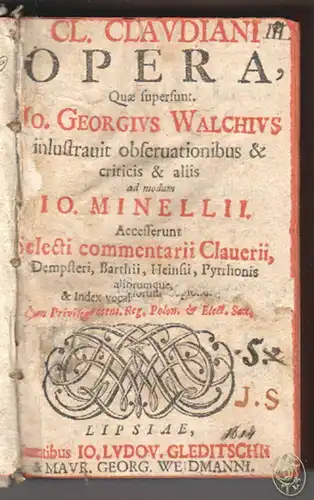 CL. CLAVDIANI
OPERA,
Quæ superſunt.
IO. GEORGIVS WALCHIVS
inluſtravit obſeruationibus &
criticis & aliis
ad modum
IO. MINELLII.
Acceſſerunt
Selecti commentarii Clauerii,
Dempſteri, Barthii, Heinſii, Pyrrhonis
aliorumque,
& Index
Cum Privileg. Reg. Polon. & Elect. Sax.
S.
J.S
LIPSIAE,
IO. LVDOV. GLEDITSCHII
& MAVR. GEORG. WEIDMANNI.